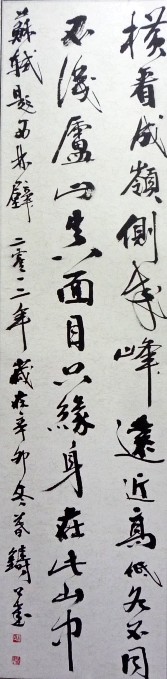 橫看成嶺側成峰遠近高低各不同
不識廬山真面目只緣身在此山中
蘇軾題西林壁 二零一二年 歲在辛卯冬 鑄